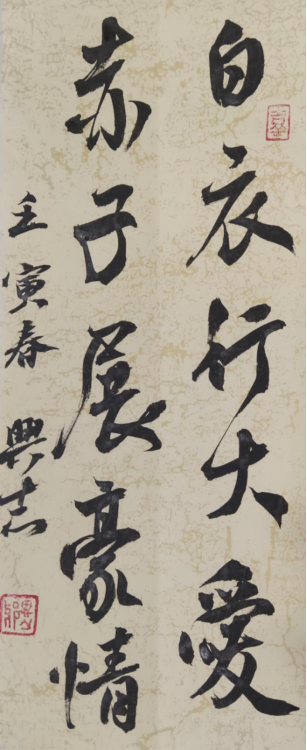 白衣行大愛
赤子展豪情
壬寅春興志